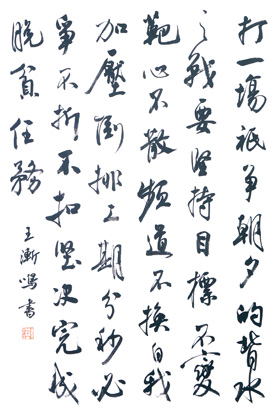 打一場祇争朝夕的背水
之戰要坚持目標不變
靶心不散频道不换自我
加壓倒排工期分秒必
争不折不扣坚决完成
脱貧任務
王漸鸿書